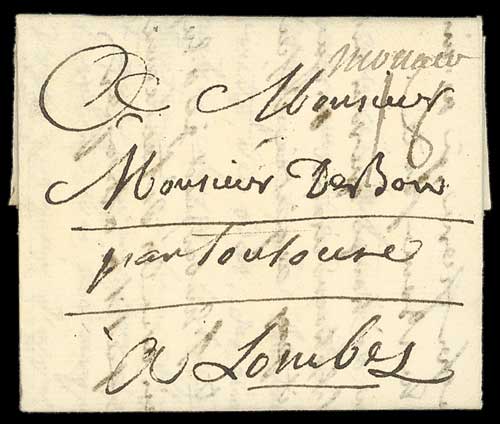 monaco
A Monsieur
18
Monsieur DeBons
par Toulouse
a Lombés